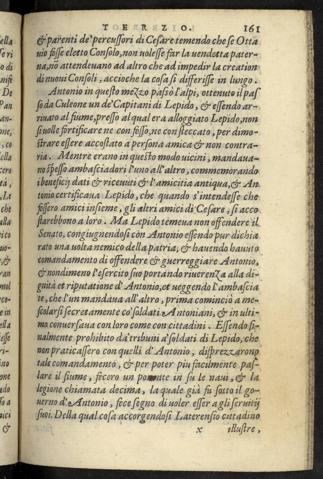 TOERREZIO. 161
& parenti de' percussori di Cesare temendo che se Otta
nio fosse eletto Consolo, non volesse far la vendetta pater-
na, nō attendevano ad altro che ad impedir la creation
di nuovi Consoli, accioche la cosa si differisse in lungo.
Antonio in questo mezzo passò l'alpi, ottenuto il pas
so da Culeone un de' Capitani di Lepido, & essendo ar-
rivato al fiume, presso al qual era alloggiato Lepido, non
si volle fortificare ne con fosso, ne con steccato, per dimo-
strare essere accostato a persona amica & non contra-
ria. Mentre erano in questo modo vicini, mandava-
no spesso ambasciadori l'uno all'altro, commemorando
i beneficij dati & ricevuti & l'amicitia antiqua, & An
tonio certificava Lepido, che quando s'intendesse che
fossero amici insieme, gli altri amici di Cesare, si acco
starebbono a loro. Ma Lepido temeva non offendere il
Senato, congiugnendosi cō Antonio essendo pur dichia
rato una volta nemico della patria, & havendo havuto
comandamento di offendere & guerreggiare Antonio,
& nondimeno l'esercito suo portando riverenza alla di-
gnità et riputatione d'Antonio, et veggendo l'ambascia
te, che l'un mandava all'altro, prima cominciò a me-
scolarsi secretamente co' soldati Antoniani, & in ulti-
mo conversava con loro come con cittadini. Essendo fi-
nalmente prohibito da' tribuni a' soldati di Lepido, che
non praticassero con quelli d'Antonio, disprezzarono
tale comandamento, & per poter piu facilmente pas-
sare il fiume, fecero un ponte in su le navi, & la
legione chiamata decima, la quale già fu sotto il go-
verno d'Antonio, fece segno di voler esser a gli servitij
suoi. Della qual cosa accorgendosi Laterensio cittadino
x illustre,